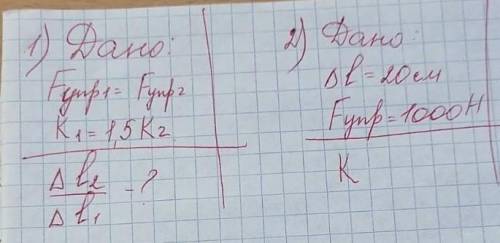 1) Дано:
Fупр1 = Fупр2
K1 = 1,5 K2
Δl2
Δl1
- ?
2) Дано:
Δl = 20 см
Fупр = 1000 Н
K